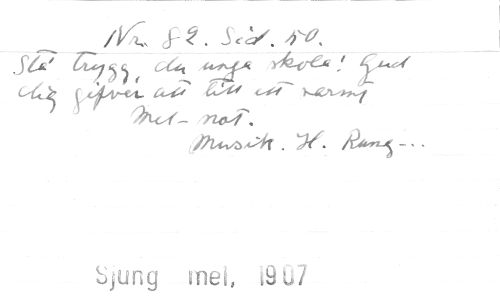 Nr. 82. Sid. 50.
Stå trygg, du unga skola! Gud
dig gifver att titt ett varmt
Mel-not.
Musik. H. Rung-...
Sjung mel, 1907